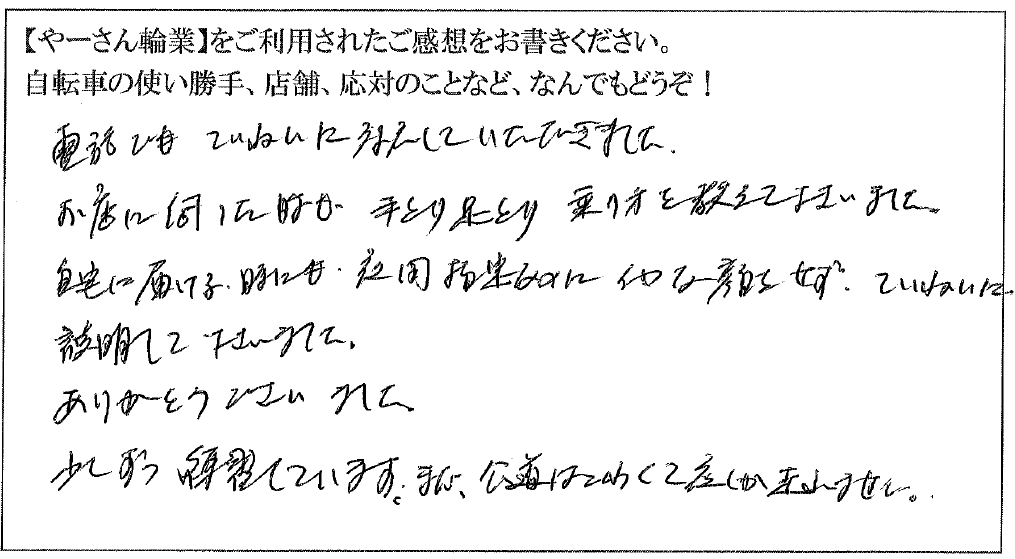 【やーさん輪業】をご利用されたご感想をお書きください。
自転車の使い勝手、店舗、応対のことなど、なんでもどうぞ！
電話でも ていねいに対応していただきました。
お店に伺った時も 手とり足とり 乗り方を教えて下さいました。
自宅に届ける時にも、夜間 にイヤな顔もせず、ていねいに
説明して下さいました。
ありがとうございました。
少しずつ練習しています。まだ、公道はこわくて しか乗れません。